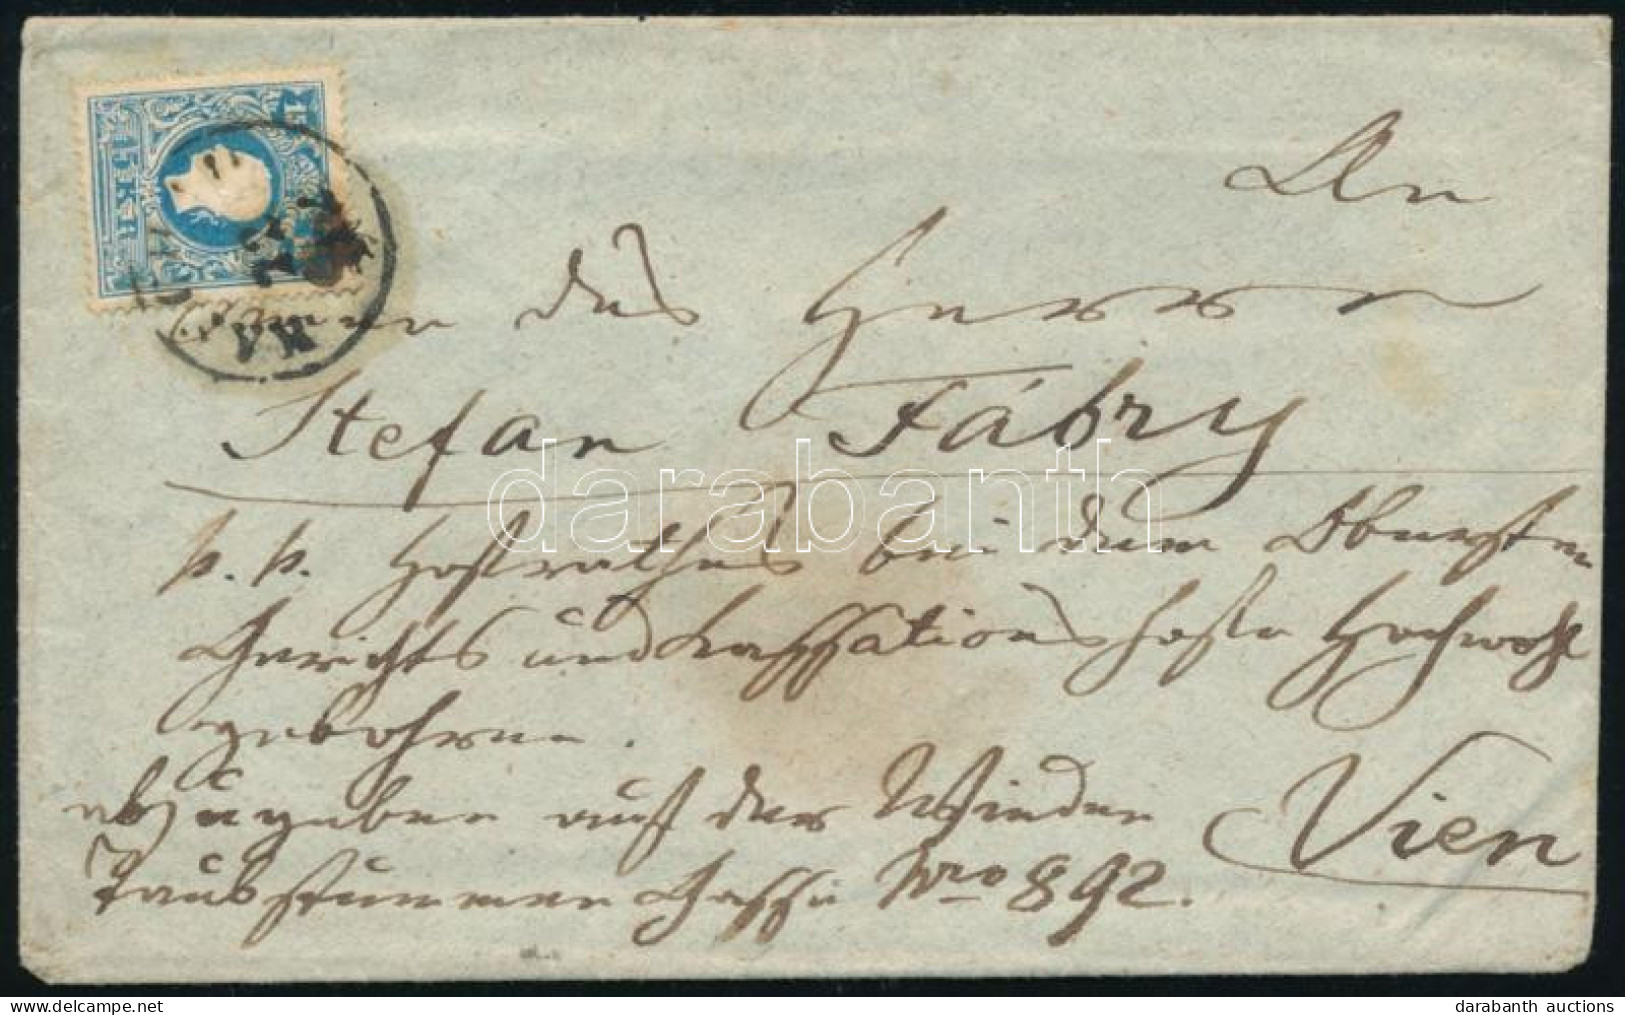 An
des Herrn
Stefan Fábry
k. k. Hofrathes bei dem Obersten
Gerichts und Kassationshofe Hochwohl
gebohren.
abzugeben auf der Wieden Wien
Taubstummen Gasse Nro 892.
15 KR
darabanth
darabanth auctions